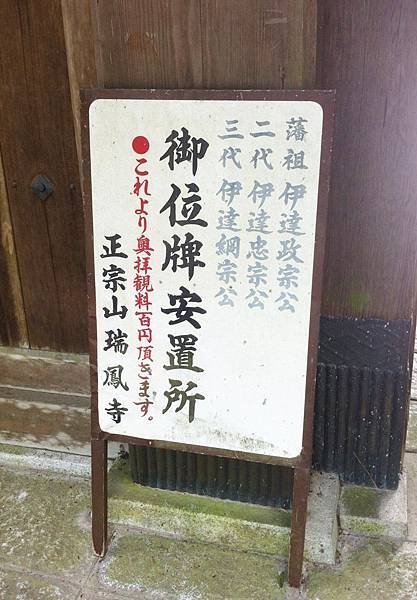 藩祖伊達政宗公
二代伊達忠宗公
三代伊達綱宗公
御位牌安置所
●これより奥拝観料百円頂きます。
正宗山瑞鳳寺